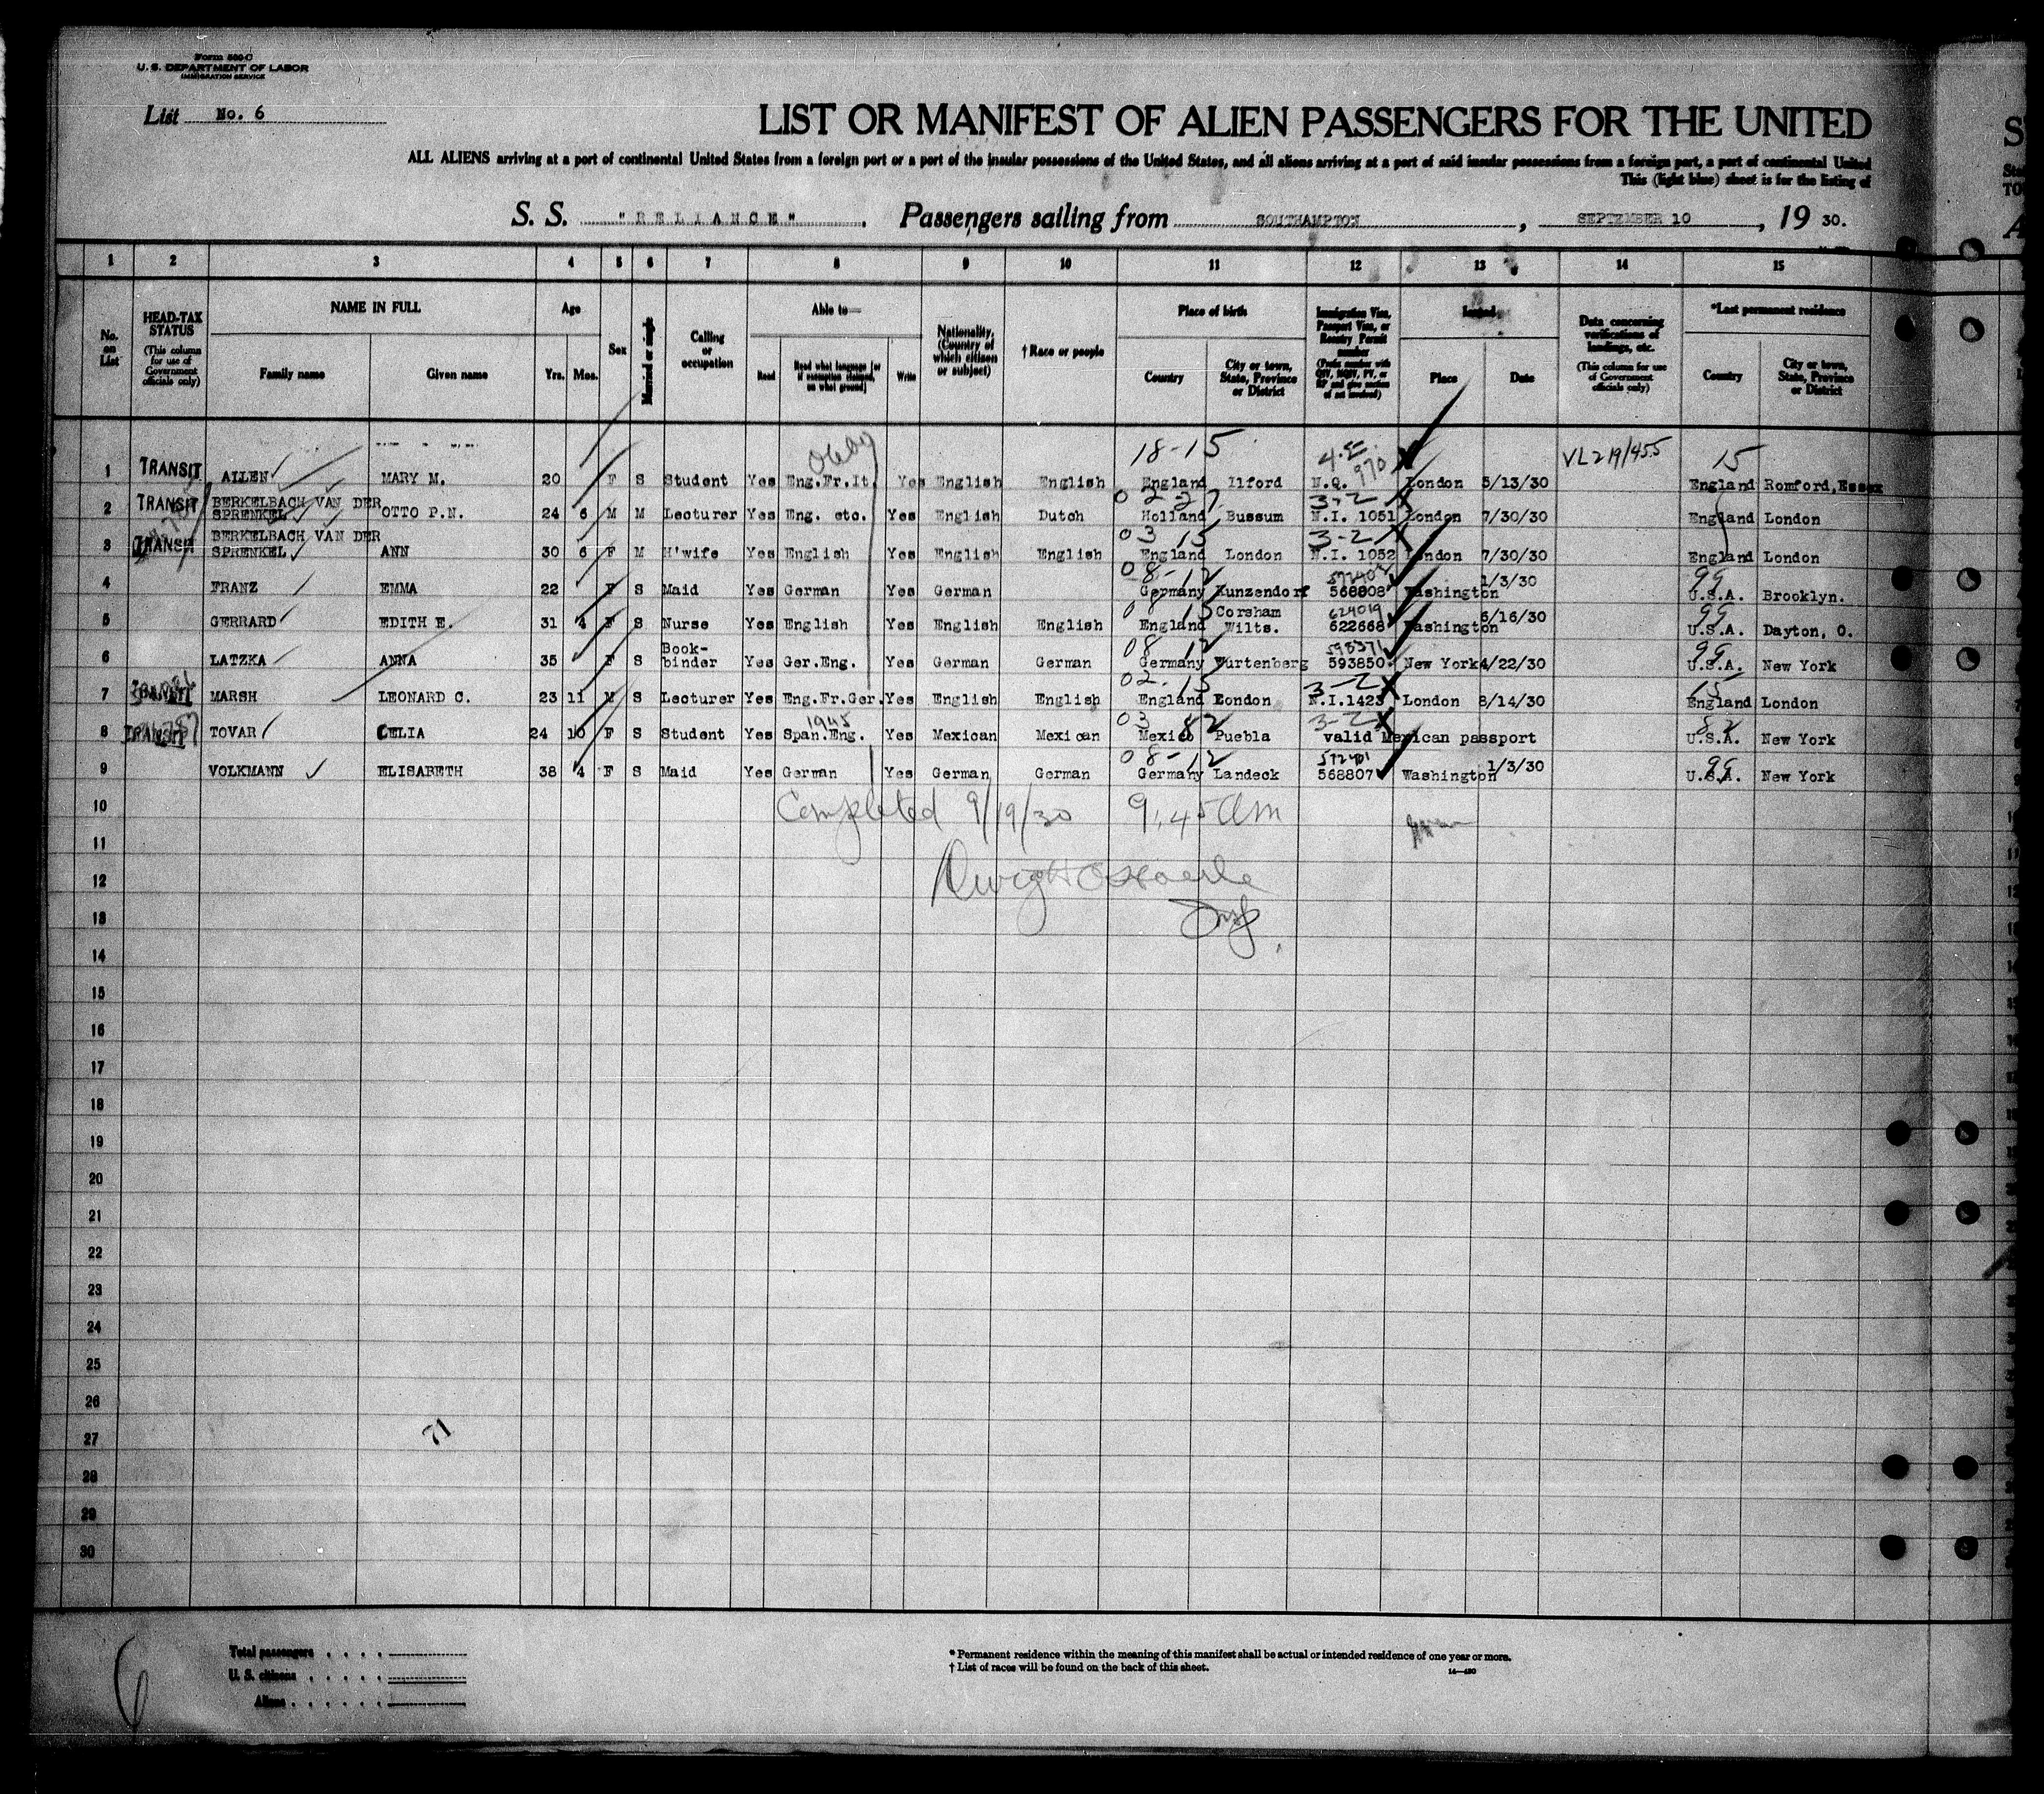 Form 500 C
U. S. DEPARTMENT OF LABOR
IMMIGRATION SERVICE
List No. 6
LIST OR MANIFEST OF ALIEN PASSENGERS FOR THE UNITED
ALL ALIENS arriving at a port of continental United States from a foreign port or a port of the insular possessions of the United States, and all aliens arriving at a port of said insular possessions from a foreign port, a port of continental United
This (light blue) sheet is for the listing of
S. S. "RELIANCE", Passengers sailing from SOUTHAMPTON, SEPTEMBER 10, 19 30.
1 2 3 4 5 6 7 8 9 10 11 12 13 14 15
No. on List
HEAD-TAX STATUS (This column for use of Government officials only)
NAME IN FULL
Family name Given name
Age
Yrs. Mos.
Sex
Married or single
Calling or occupation
Able to—
Read Read what language [or if exemption claimed, on what ground] Write
Nationality. (Country of which citizen or subject)
† Race or people
Place of birth
Country City or town, State, Province or District
Immigration Visa, Passport Visa, or Reentry Permit number
(Prefix number with QIV, NQIV, PV, or RP and give section of act involved)
Issued
Place Date
Data concerning verifications of landings, etc. (This column for use of Government officials only)
*Last permanent residence
Country City or town, State, Province or District
18-15 VL 219/455 15
1 TRANSIT ALLEN MARY M. 20 F S Student Yes Eng.Fr.It. Yes English English England Ilford N.Q. 970 London 5/13/30 England Romford, Essex
02-27 3-2
2 TRANSIT BERKELBACH VAN DER SPRENKEL OTTO P.N. 24 6 M M Lecturer Yes Eng. etc. Yes English Dutch Holland Bussum N.I. 1051 London 7/30/30 England London
03 15 3-2
3 TRANSIT BERKELBACH VAN DER SPRENKEL ANN 30 6 F M H'wife Yes English Yes English English England London N.I. 1052 London 7/30/30 England London
08-12 99
4 FRANZ EMMA 22 F S Maid Yes German Yes German Germany Kunzendorf 568808 Washington 1/3/30 U.S.A. Brooklyn.
08 15 624019 99
5 GERRARD EDITH E. 31 4 F S Nurse Yes English Yes English English England Corsham Wilts. 622668 Washington 6/16/30 U.S.A. Dayton, O.
08 12 595371 99
6 LATZKA ANNA 35 F S Book-binder Yes Ger.Eng. Yes German German Germany Wurtenberg 593850 New York 4/22/30 U.S.A. New York
02. 15 3-2 15
7 TRANSIT MARSH LEONARD C. 23 11 M S Lecturer Yes Eng.Fr.Ger. Yes English English England London N.I.1423 London 8/14/30 England London
1945 03 82 3-2 82
8 TRANSIT TOVAR CELIA 24 10 F S Student Yes Span.Eng. Yes Mexican Mexican Mexico Puebla valid Mexican passport U.S.A. New York
08-12 572401 99
9 VOLKMANN ELISABETH 38 4 F S Maid Yes German Yes German German Germany Landeck 568807 Washington 1/3/30 U.S.A. New York
10 Completed 9/19/30 9.45 am
11
12 Dwight
13 Insp.
14
15
16
17
18
19
20
21
22
23
24
25
26
27 71
28
29
30
6
Total passengers
U. S. citizens
Aliens
* Permanent residence within the meaning of this manifest shall be actual or intended residence of one year or more.
† List of races will be found on the back of this sheet.
14—430